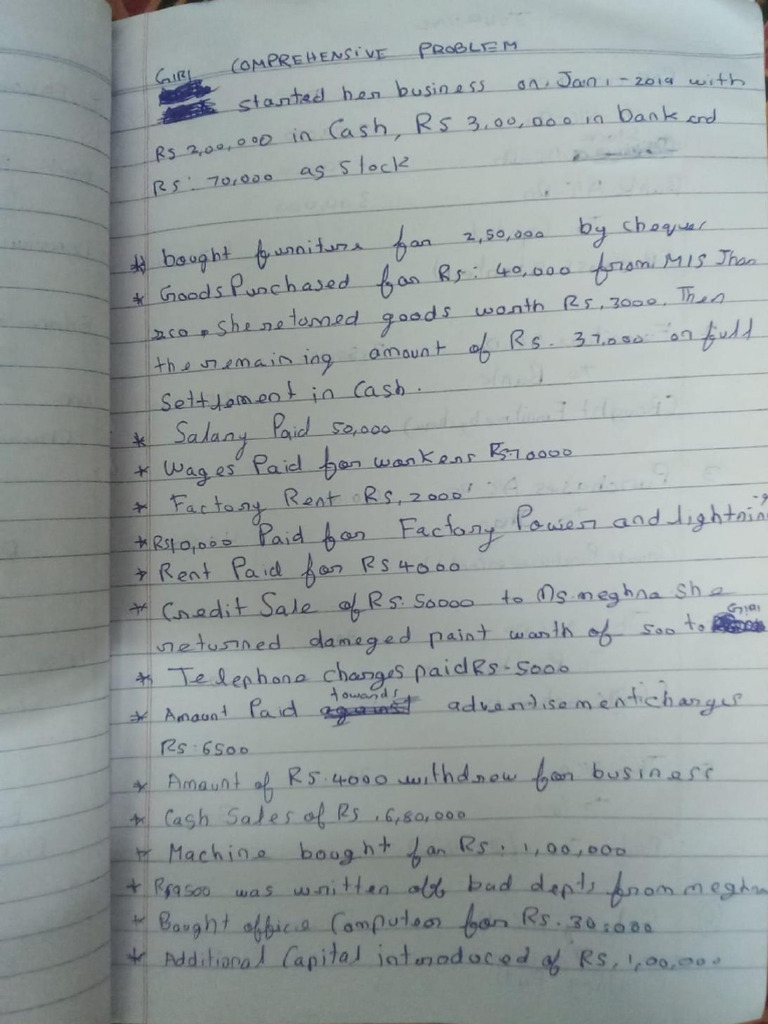 GIRI COMPREHENSIVE PROBLEM
started her business on Jan 1-2019 with
Rs 2,00,000 in Cash, Rs 3,00,000 in bank and
Rs: 70,000 as Stock
* bought furniture for 2,50,000 by cheques
* Goods Purchased for Rs: 40,000 from M/S Jhan
& co. She returned goods worth Rs. 3000. Then
the remaining amount of Rs. 37,000 on full
settlement in Cash.
* Salary Paid 50,000
* Wages Paid for workers Rs 70000
* Factory Rent Rs, 2000
* Rs10,000 Paid for Factory Power and lightning
* Rent Paid for Rs 4000
* Credit Sale of Rs. 50000 to Ms meghna She
returned dameged paint worth of 500 to GIRI
* Telephone charges paid Rs. 5000
* Amount Paid towards advertisement charges
Rs. 6500
* Amount of Rs. 4000 withdrew for business
* Cash Sales of Rs. 6,80,000
* Machine bought for Rs: 1,00,000
* was written off bad depts from meghna
* Bought office Computer for Rs. 30,000
* Additional Capital introduced of Rs, 1,00,000